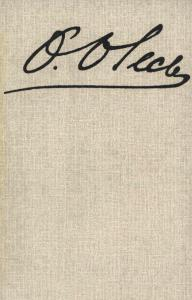 О. Олесь